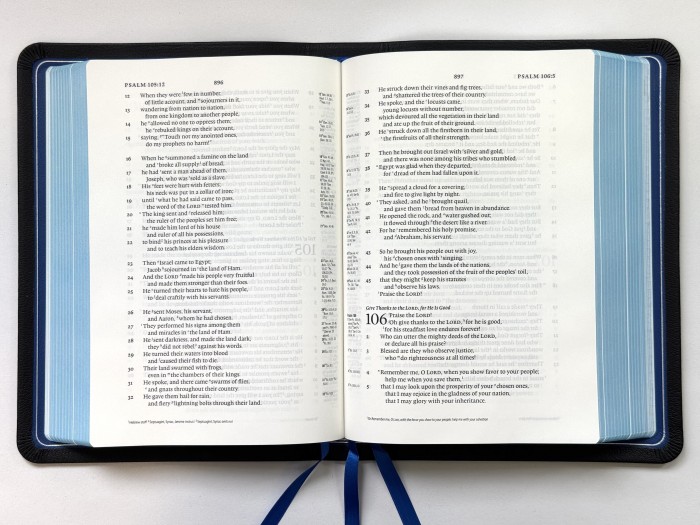 PSALM 105:12 896
12 When they were few in number,
of little account, and sojourners in it,
13 wandering from nation to nation,
from one kingdom to another people,
14 he allowed no one to oppress them;
he rebuked kings on their account,
15 saying, "Touch not my anointed ones,
do my prophets no harm!"
16 When he summoned a famine on the land
and broke all supply of bread,
17 he had sent a man ahead of them,
Joseph, who was sold as a slave.
18 His feet were hurt with fetters;
his neck was put in a collar of iron;
19 until what he had said came to pass,
the word of the LORD tested him.
20 The king sent and released him;
the ruler of the peoples set him free;
21 he made him lord of his house
and ruler of all his possessions,
22 to bind his princes at his pleasure
and to teach his elders wisdom.
23 Then Israel came to Egypt;
Jacob sojourned in the land of Ham.
24 And the LORD made his people very fruitful
and made them stronger than their foes.
25 He turned their hearts to hate his people,
to deal craftily with his servants.
26 He sent Moses, his servant,
and Aaron, whom he had chosen.
27 They performed his signs among them
and miracles in the land of Ham.
28 He sent darkness, and made the land dark;
they did not rebel against his words.
29 He turned their waters into blood
and caused their fish to die.
30 Their land swarmed with frogs,
even in the chambers of their kings.
31 He spoke, and there came swarms of flies,
and gnats throughout their country.
32 He gave them hail for rain,
and fiery lightning bolts through their land.
897 PSALM 106:5
33 He struck down their vines and fig trees,
and shattered the trees of their country.
34 He spoke, and the locusts came,
young locusts without number,
35 which devoured all the vegetation in their land
and ate up the fruit of their ground.
36 He struck down all the firstborn in their land,
the firstfruits of all their strength.
37 Then he brought out Israel with silver and gold,
and there was none among his tribes who stumbled.
38 Egypt was glad when they departed,
for dread of them had fallen upon it.
39 He spread a cloud for a covering,
and fire to give light by night.
40 They asked, and he brought quail,
and gave them bread from heaven in abundance.
41 He opened the rock, and water gushed out;
it flowed through the desert like a river.
42 For he remembered his holy promise,
and Abraham, his servant.
43 So he brought his people out with joy,
his chosen ones with singing.
44 And he gave them the lands of the nations,
and they took possession of the fruit of the peoples' toil,
45 that they might keep his statutes
and observe his laws.
Praise the LORD!
Give Thanks to the LORD, for He Is Good
106 Praise the LORD!
Oh give thanks to the LORD, for he is good,
for his steadfast love endures forever!
2 Who can utter the mighty deeds of the LORD,
or declare all his praise?
3 Blessed are they who observe justice,
who do righteousness at all times!
4 Remember me, O LORD, when you show favor to your people;
help me when you save them,
5 that I may look upon the prosperity of your chosen ones,
that I may rejoice in the gladness of your nation,
that I may glory with your inheritance.